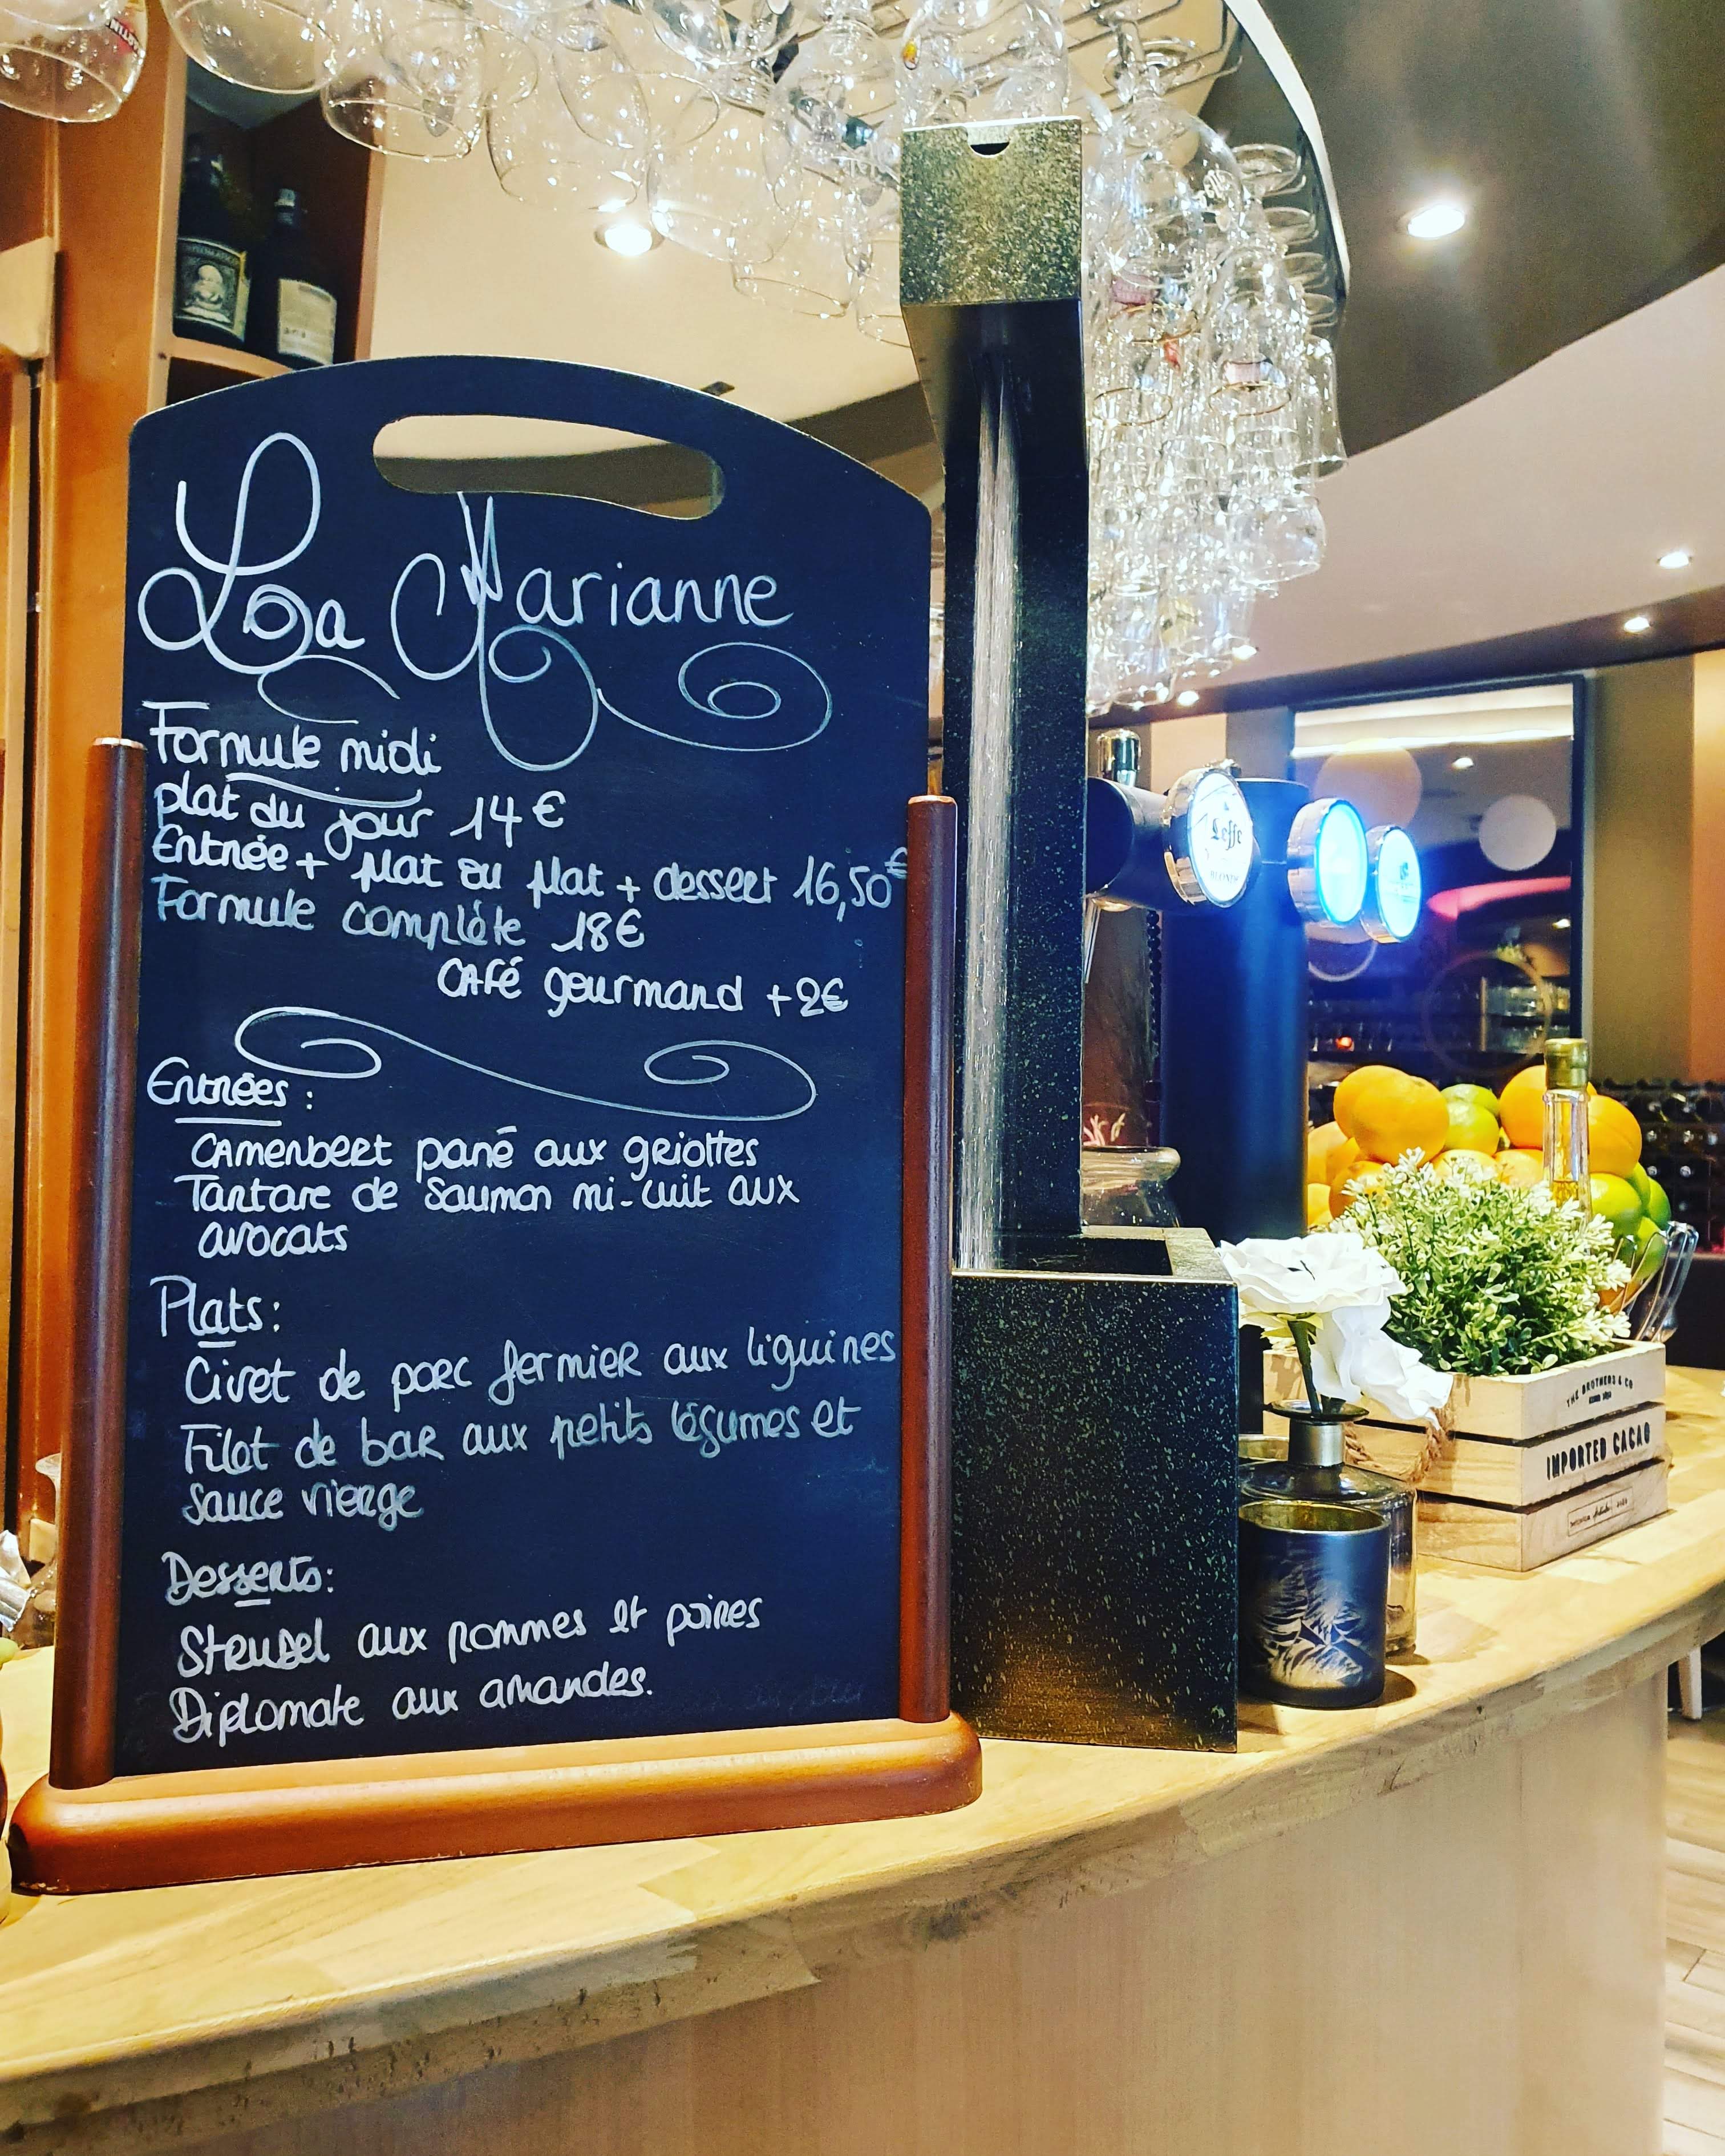 La Marianne
Formule midi
plat du jour 14€
Entrée + plat ou plat + dessert 16,50€
Formule complète 18€
CAFÉ gourmand +2€
Entrées :
CAMENBERT pané aux griottes
Tartare de saumon mi-cuit aux
avocats
Plats :
Civet de porc fermier aux liguines
Filet de bar aux petits légumes et
sauce vierge
Desserts :
Streusel aux pommes et poires
Diplomate aux amandes.
Leffe
BLONDE
THE BROTHERS & CO
IMPORTED CACAO